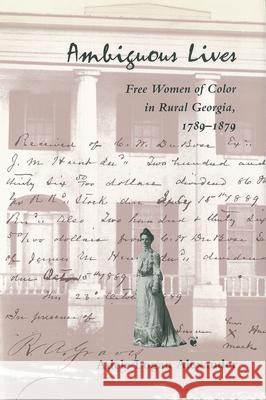 Ambiguous Lives
Free Women of Color
in Rural Georgia,
1789–1879
Received of C. W. DuBose Ex.
J. M. Hunt dec' Two hundred and
thirty six 50/00 dollars dividend 86
R R' Stock due July 15th 1889
Also Two hundred & thirty six
50/00 two dollars from C. W. DuBose Ex
of James M. Hun dec' dividend
due Oct 15th 1889
this 23 1889
In presence of
R A Graves
mark
Adele Logan Alexander